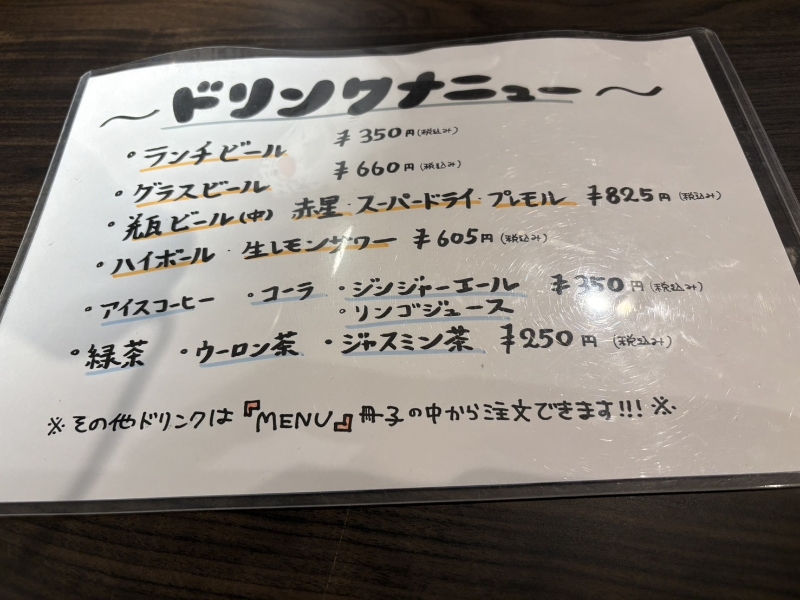 ～ドリンクメニュー～
・ランチビール ¥350円(税込み)
・グラスビール ¥660円(税込み)
・瓶ビール(中) 赤星・スーパードライ・プレモル ¥825円(税込み)
・ハイボール ・生レモンサワー ¥605円(税込み)
・アイスコーヒー ・コーラ ・ジンジャーエール ¥350円(税込み)
・リンゴジュース
・緑茶 ・ウーロン茶 ・ジャスミン茶 ¥250円(税込み)
※その他ドリンクは『MENU』冊子の中から注文できます!!!※